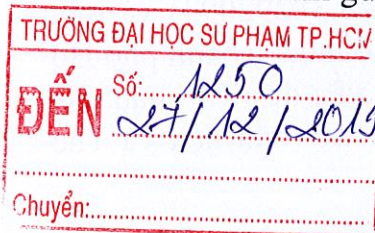 TRƯỜNG ĐẠI HỌC SƯ PHẠM TP.HCM
ĐẾN
Số:.....1250
27/12/2019
Chuyển: